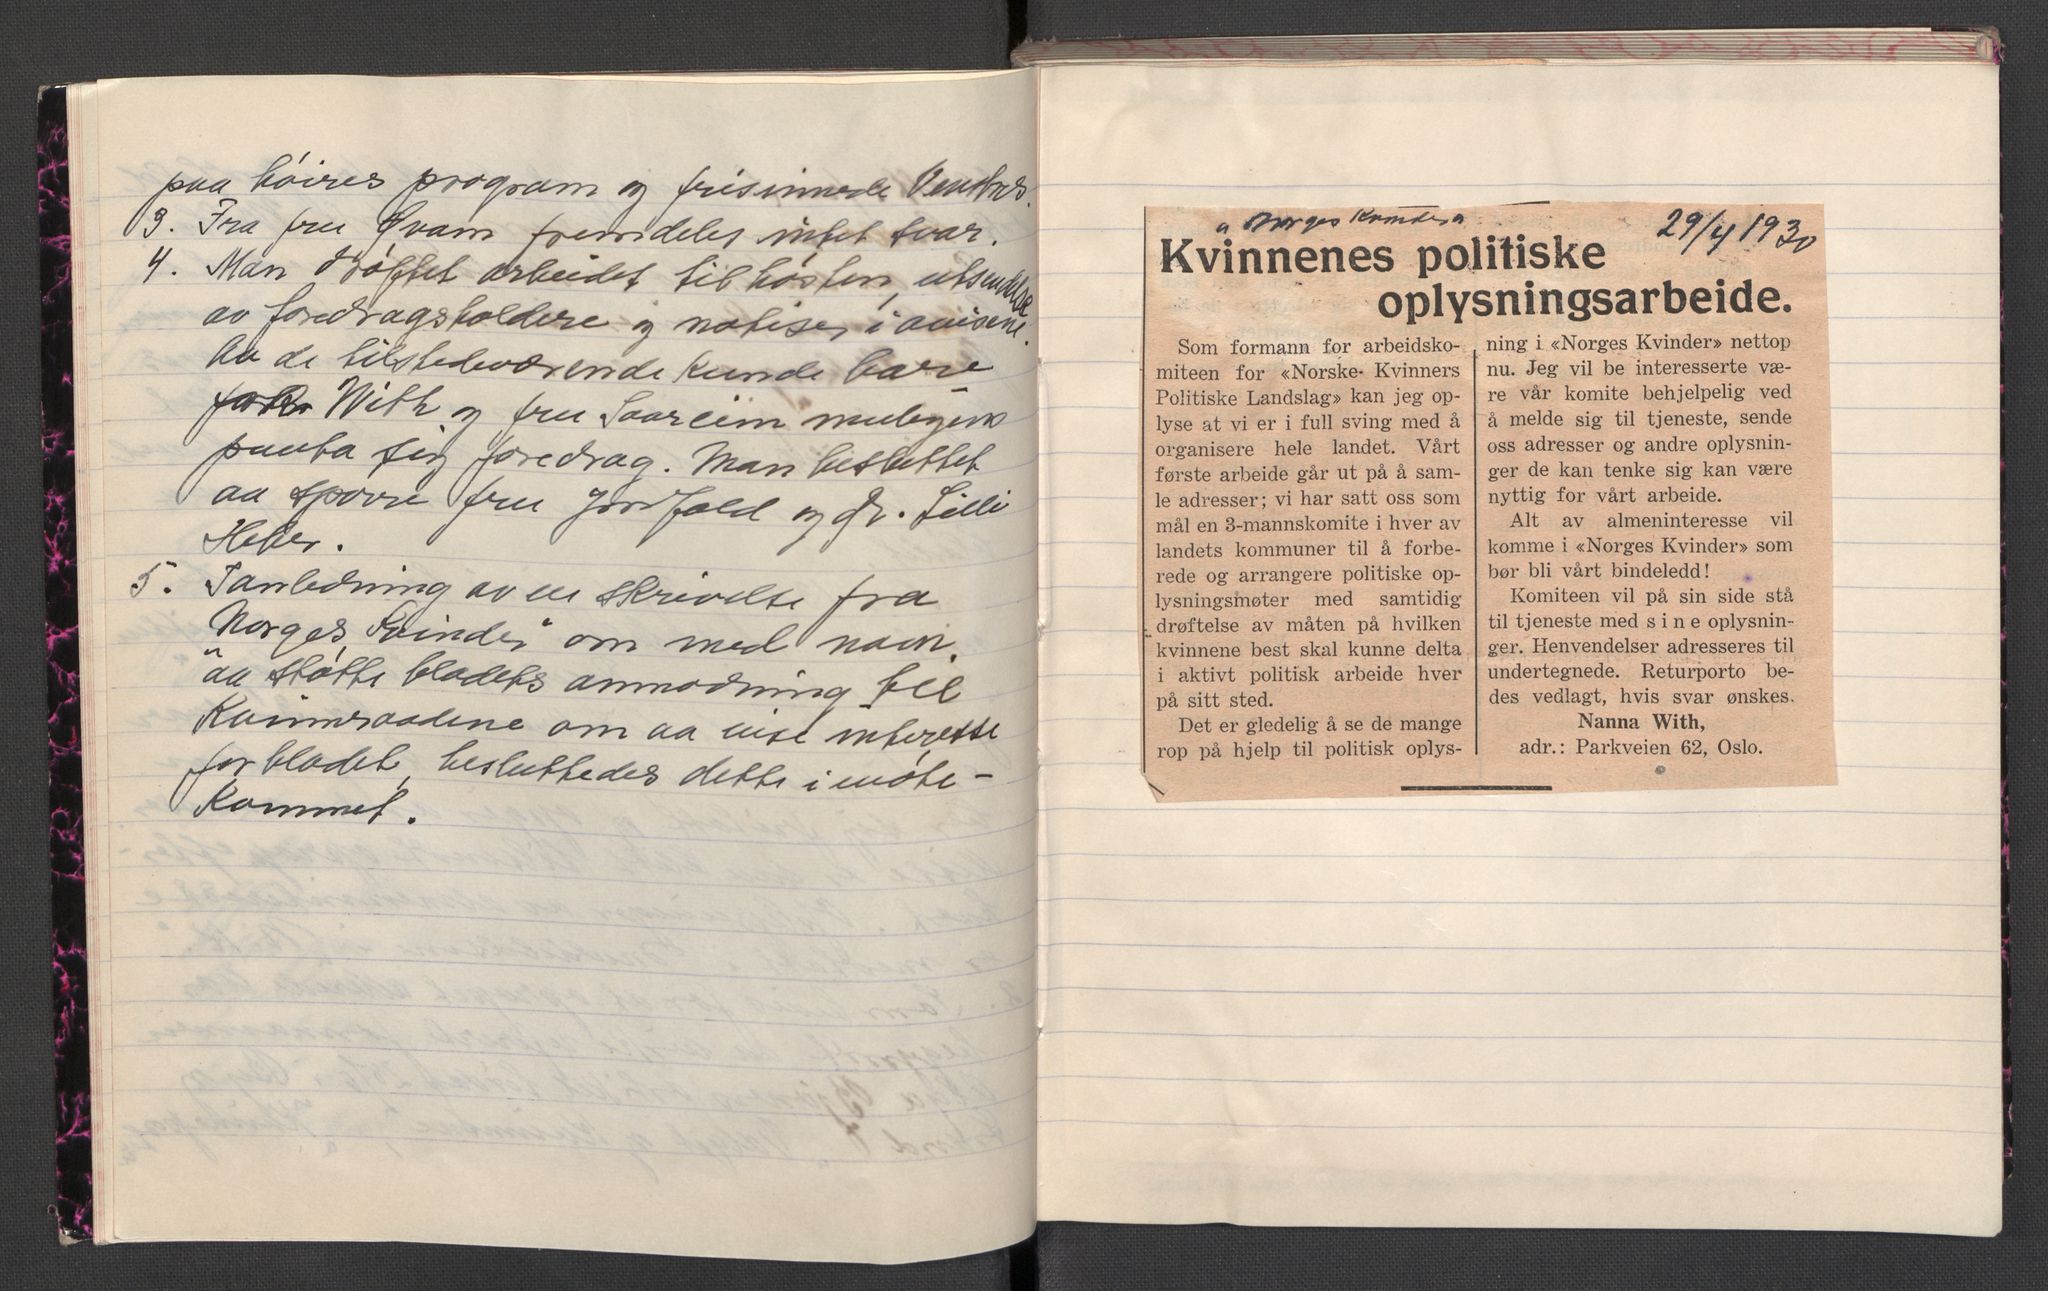 paa höires program og frisinnede Venstres.
3. Fra fru Qvam fremdeles intet svar.
4. Man drøftet arbeidet til høsten, utsendelse
av foredragsholdere og notiser i avisene.
Av de tilstedeværende kunde bare
With og fru Saareim muligens
paata sig foredrag. Man besluttet
aa spørre fru og dr. Lilli
Heber.
5. I anledning av en skrivelse fra
"Norges Kvinder" om med navn
aa støtte bladets anmodning til
Kvinneraadene om aa vise interesse
for bladet, besluttedes dette imøte-
kommet.
Norges Kvinder 29/4 1930
Kvinnenes politiske
oplysningsarbeide.
Som formann for arbeidsko-
miteen for «Norske Kvinners
Politiske Landslag» kan jeg op-
lyse at vi er i full sving med å
organisere hele landet. Vårt
første arbeide går ut på å sam-
le adresser; vi har satt oss som
mål en 3-mannskomite i hver av
landets kommuner til å forbe-
rede og arrangere politiske op-
lysningsmøter med samtidig
drøftelse av måten på hvilken
kvinnene best skal kunne delta
i aktivt politisk arbeide hver
på sitt sted.
Det er gledelig å se de mange
rop på hjelp til politisk oplys-
ning i «Norges Kvinder» nettop
nu. Jeg vil be interesserte væ-
re vår komite behjelpelig ved
å melde sig til tjeneste, sende
oss adresser og andre oplysnin-
ger de kan tenke sig kan være
nyttig for vårt arbeide.
Alt av almeninteresse vil
komme i «Norges Kvinder» som
bør bli vårt bindeledd!
Komiteen vil på sin side stå
til tjeneste med sine oplysnin-
ger. Henvendelser adresseres til
undertegnede. Returporto be-
des vedlagt, hvis svar ønskes.
Nanna With,
adr.: Parkveien 62, Oslo.